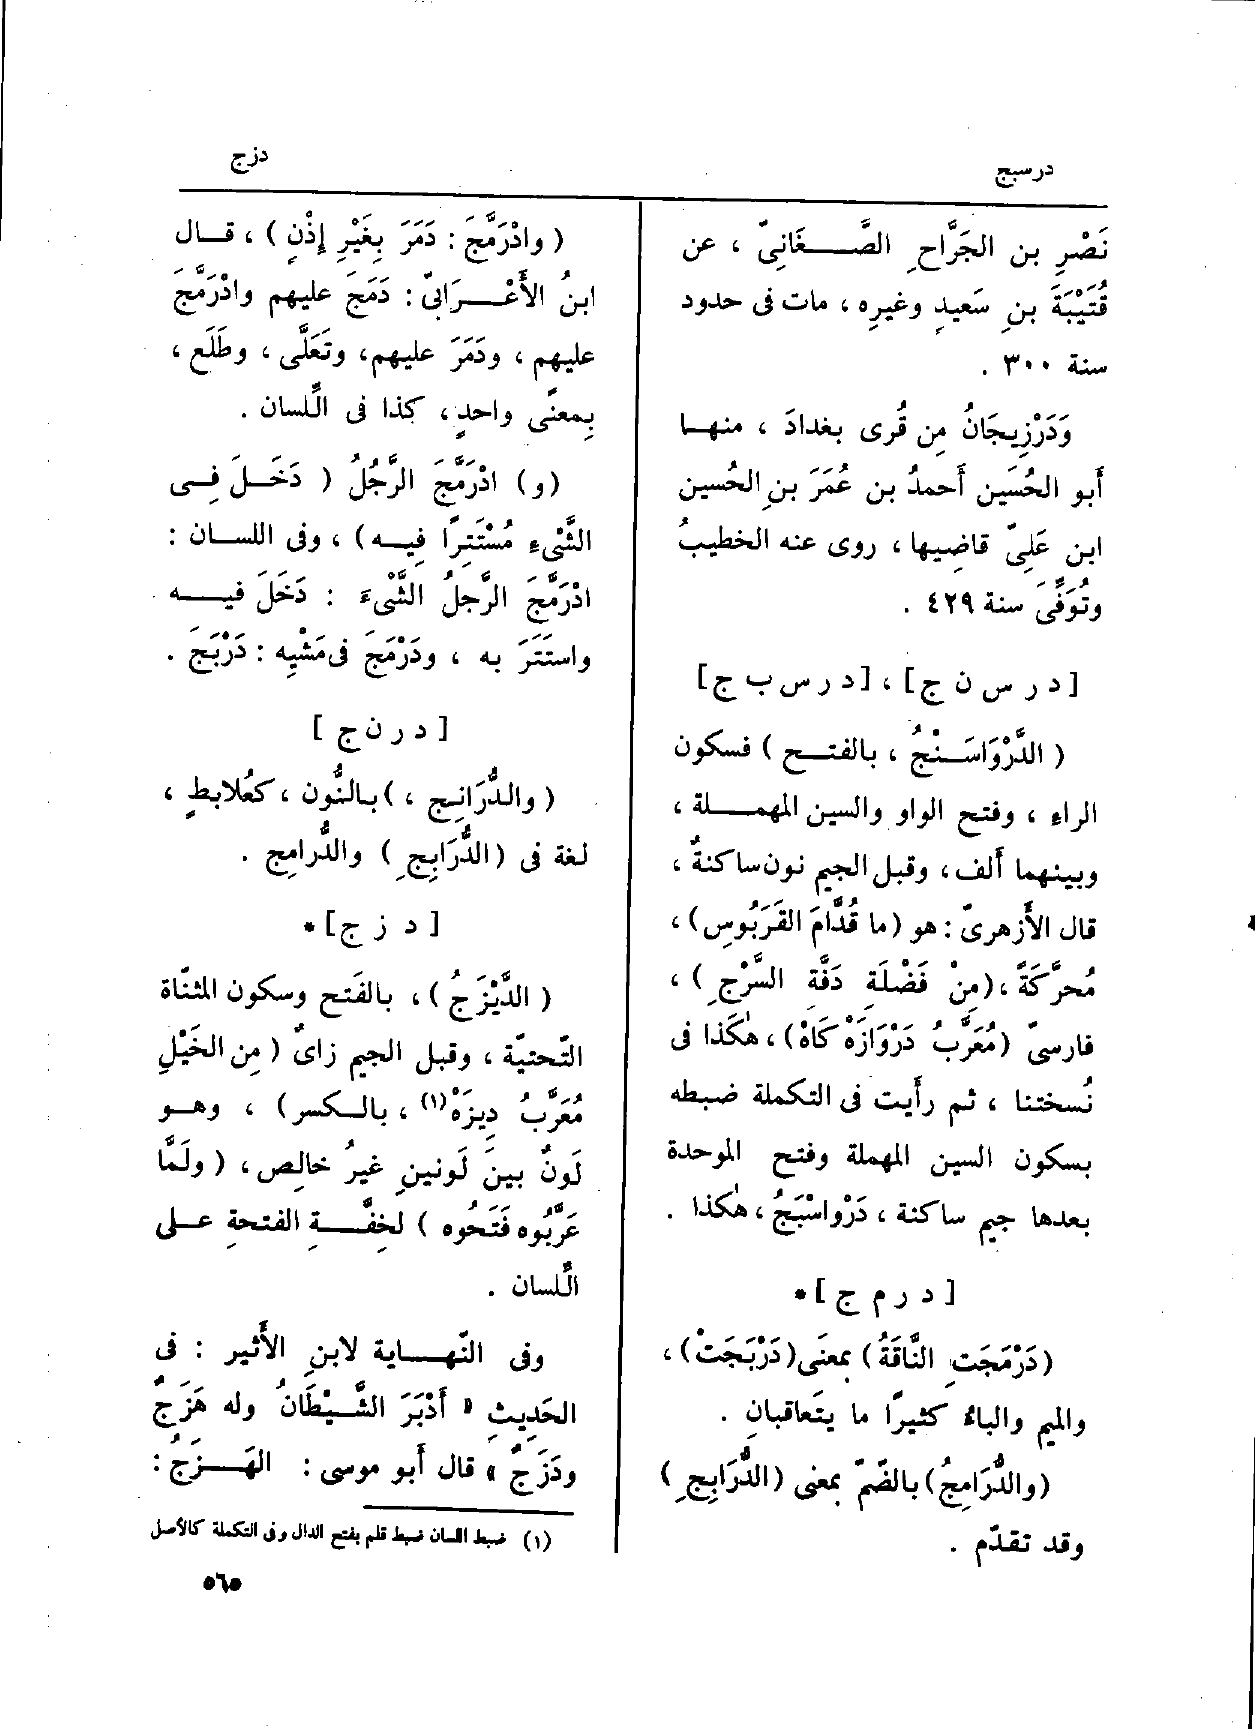 درسبج
دزج
نَصْرِ بن الجَرَّاحِ الصَّغَانِىّ ، عن
قُتَيْبَةَ بنِ سَعِيدٍ وغيرِه ، مات فى حدود
سنة ٣٠٠ .
وَدَرْزِيجَانُ مِن قُرى بغدادَ ، منها
أبو الحُسَين أَحمدُ بن عُمَرَ بنِ الحُسين
ابن عَلِىّ قاضِيها ، روى عنه الخطيبُ
وتُوفِّىَ سنة ٤٢٩ .
[ د ر س ن ج ] ، [ د ر س ب ج ]
( الدَّرْوَاسَنْجُ ، بالفتح ) فسكون
الراء ، وفتح الواو والسين المهملة ،
وبينهما أَلف ، وقبل الجيم نون ساكنةٌ ،
قال الأَزهرىّ : هو (ما قُدَّامَ القَرَبُوسِ) ،
مُحرَّكَةً ، (مِنْ فَضْلَةِ دَفَّةِ السَّرْجِ ) ،
فارسىّ (مُعَرَّبُ دَرْوَازَهْ كَاهْ) ، هٰكَذا فى
نُسختنا ، ثم رأَيت فى التكملة ضبطه
بسكون السين المهملة وفتح الموحدة
بعدها جيم ساكنة ، دَرْواسْبَجُ ، هٰكذا .
[ د ر م ج ] *
(دَرْمَجَتِ النَّاقَةُ) بمعنَى (دَرْبَجَتْ) ،
والميم والباءُ كثيرًا ما يتَعاقبانِ .
(والدُّرَامِجُ) بالضّمّ بمعنى (الدُّرَابِجِ )
وقد تقدّم .
( وادْرَمَّجَ : دَمَرَ بِغَيْرِ إِذْنٍ ) ، قال
ابنُ الأَعْرَابىّ : دَمَجَ عليهم وادْرَمَّجَ
عليهم ، ودَمَرَ عليهم ، وتَعَلَّى ، وطَلَع ،
بِمعنًى واحدٍ ، كذا فى الّلسان .
(و) ادْرَمَّجَ الرَّجُلُ ( دَخَلَ فِى
الشَّىْءِ مُسْتَتِرًا فِيه) ، وفى اللسان :
ادْرَمَّجَ الرَّجلُ الشَّىْءَ : دَخَلَ فيه
واستَتَرَ به ، ودَرْمَجَ فى مَشْيِه : دَرْبَجَ .
[ د ر ن ج ]
( والدُّرَانِج ، ) بالنُّون ، كعُلابطٍ ،
لغة فى (الدُّرَابِجِ ) والدُّرامِج .
[ د ز ج ] *
( الدَّيْزَجُ ) ، بالفَتح وسكون المثنّاة
التّحتيّة ، وقبل الجيم زاىٌ ( مِن الخَيْلِ
مُعَرَّبُ دِيزَهْ (١) ، بالكسر) ، وهو
لَونٌ بينَ لَونينِ غيرُ خالِصٍ ، ( ولَمَّا
عَرَّبُوه فَتَحُوه ) لخِفَّةِ الفتحةِ على
الّلسان .
وفى النّهاية لابنِ الأَثير : فى
الحَدِيثِ « أَدْبَرَ الشَّيْطَانُ وله هَزَجٌ
ودَزَجٌ » قال أَبو موسى : الهَزَجُ :
(١) ضبط اللسان ضبط قلم بفتح الدال وفى التكملة كالأصل
٥٦٥